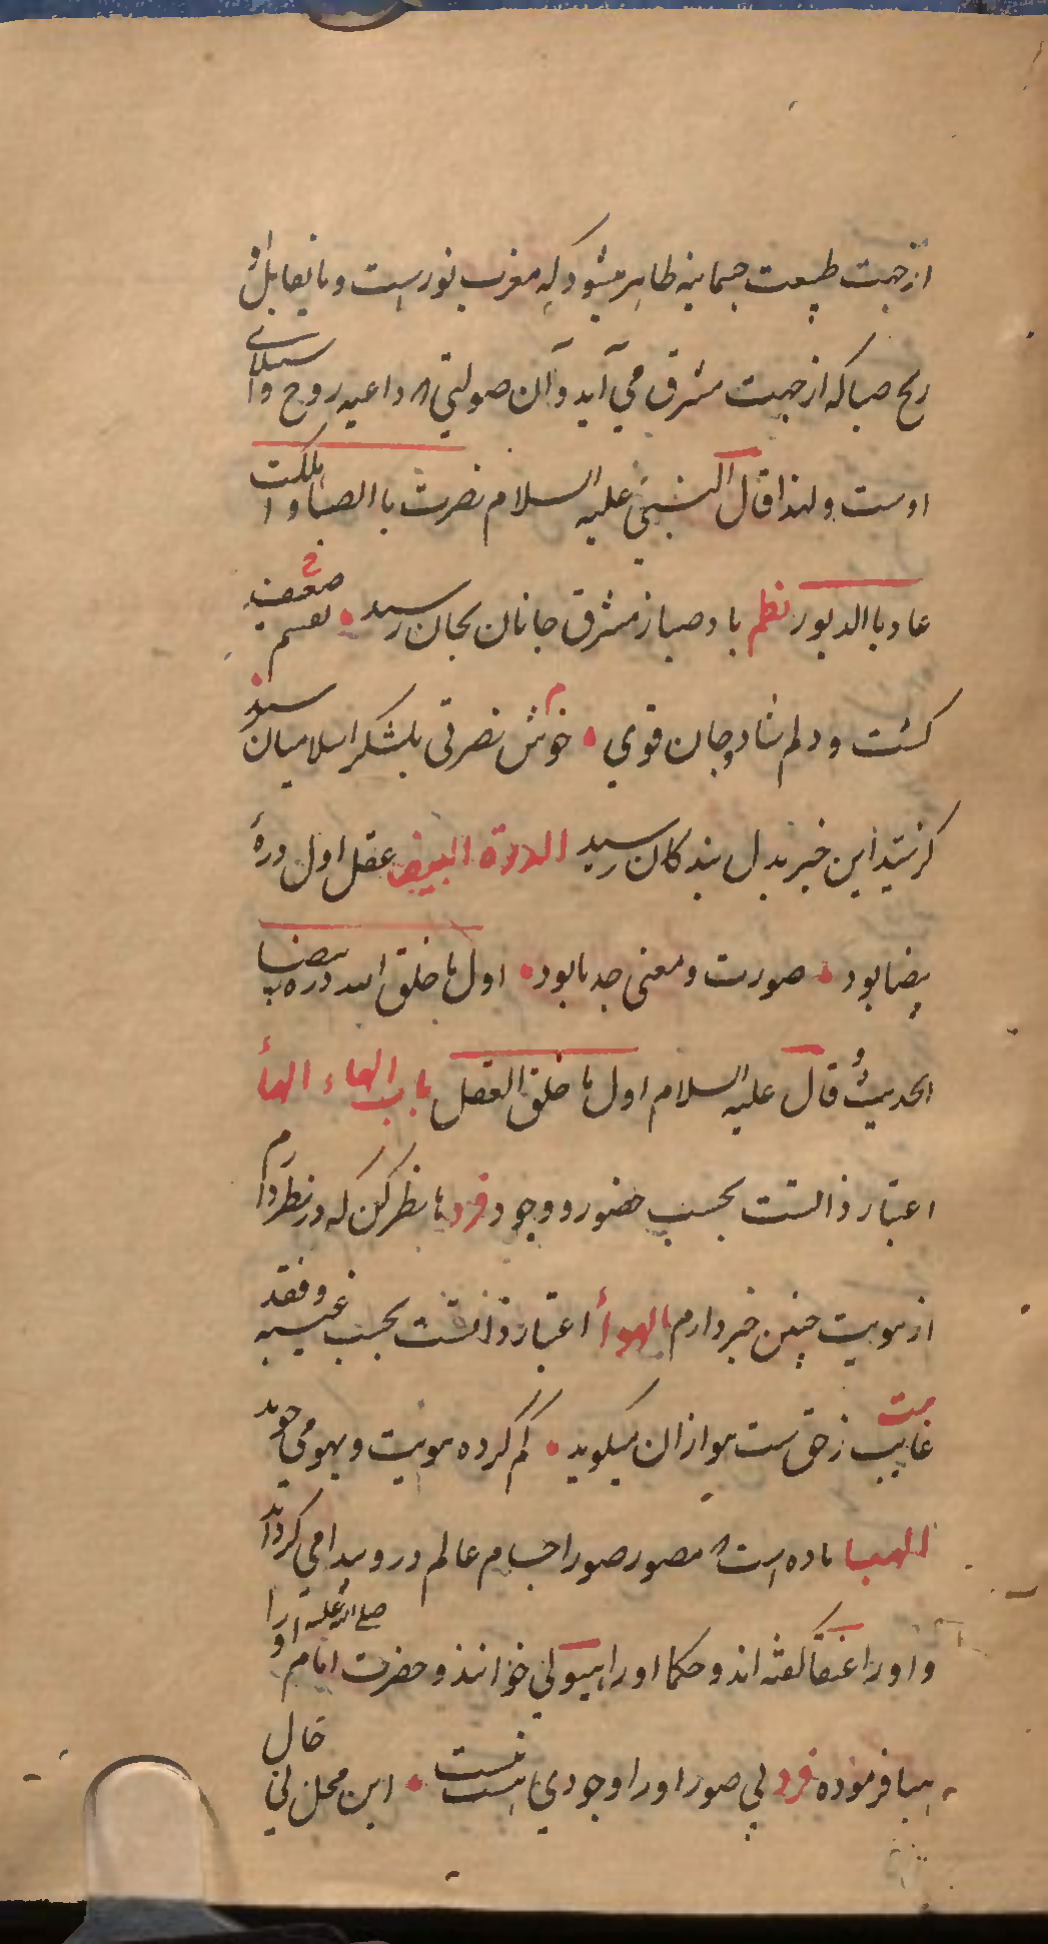 از جهت طبیعت جسمانیه ظاهر میشود که مغرب نورست و ما یقابل او
ریح صبا که از جهت مشرق می آید و آن صولت داعیه روح و استیلای
اوست و لهذا قال النبی علیه السلام نصرت با الصبا و اهلکت
عاد با الدبور نظم باد صبا ز مشرق جانان بجان رسید • نفسم ضعیف
کشت و دلم شاد و جان قوی • خوش نصرتی بلشکر اسلامیان رسید
این خبر بدل بندکان رسید الدرة البیضا عقل اول درهٔ
بیضا بود • صورت و معنی جد ما بود • اول ما خلق الله دره بیضا
الحدیث و قال علیه السلام اول ما خلق العقل باب الهاء الهأ
اعتبار ذاتست بحسب حضور و وجود فرد ها نظر کن که در نظر دارم
از هویت چنین خبر دارم الهوأ اعتبار ذاتست بحسب غیبه و فقد
غایب ز حق ست هو ازان میکوید • کم کرده هویت و بهو می جوید
الهبا ماده است مصور صور اجسام عالم درو پیدا می کرداند
و او را عنقا کفته اند و حکما او را هیولی خوانند و حضرت امام علیه او را
هبا فرموده فرد بی صور او را وجودی هست نیست • این محل بی حال